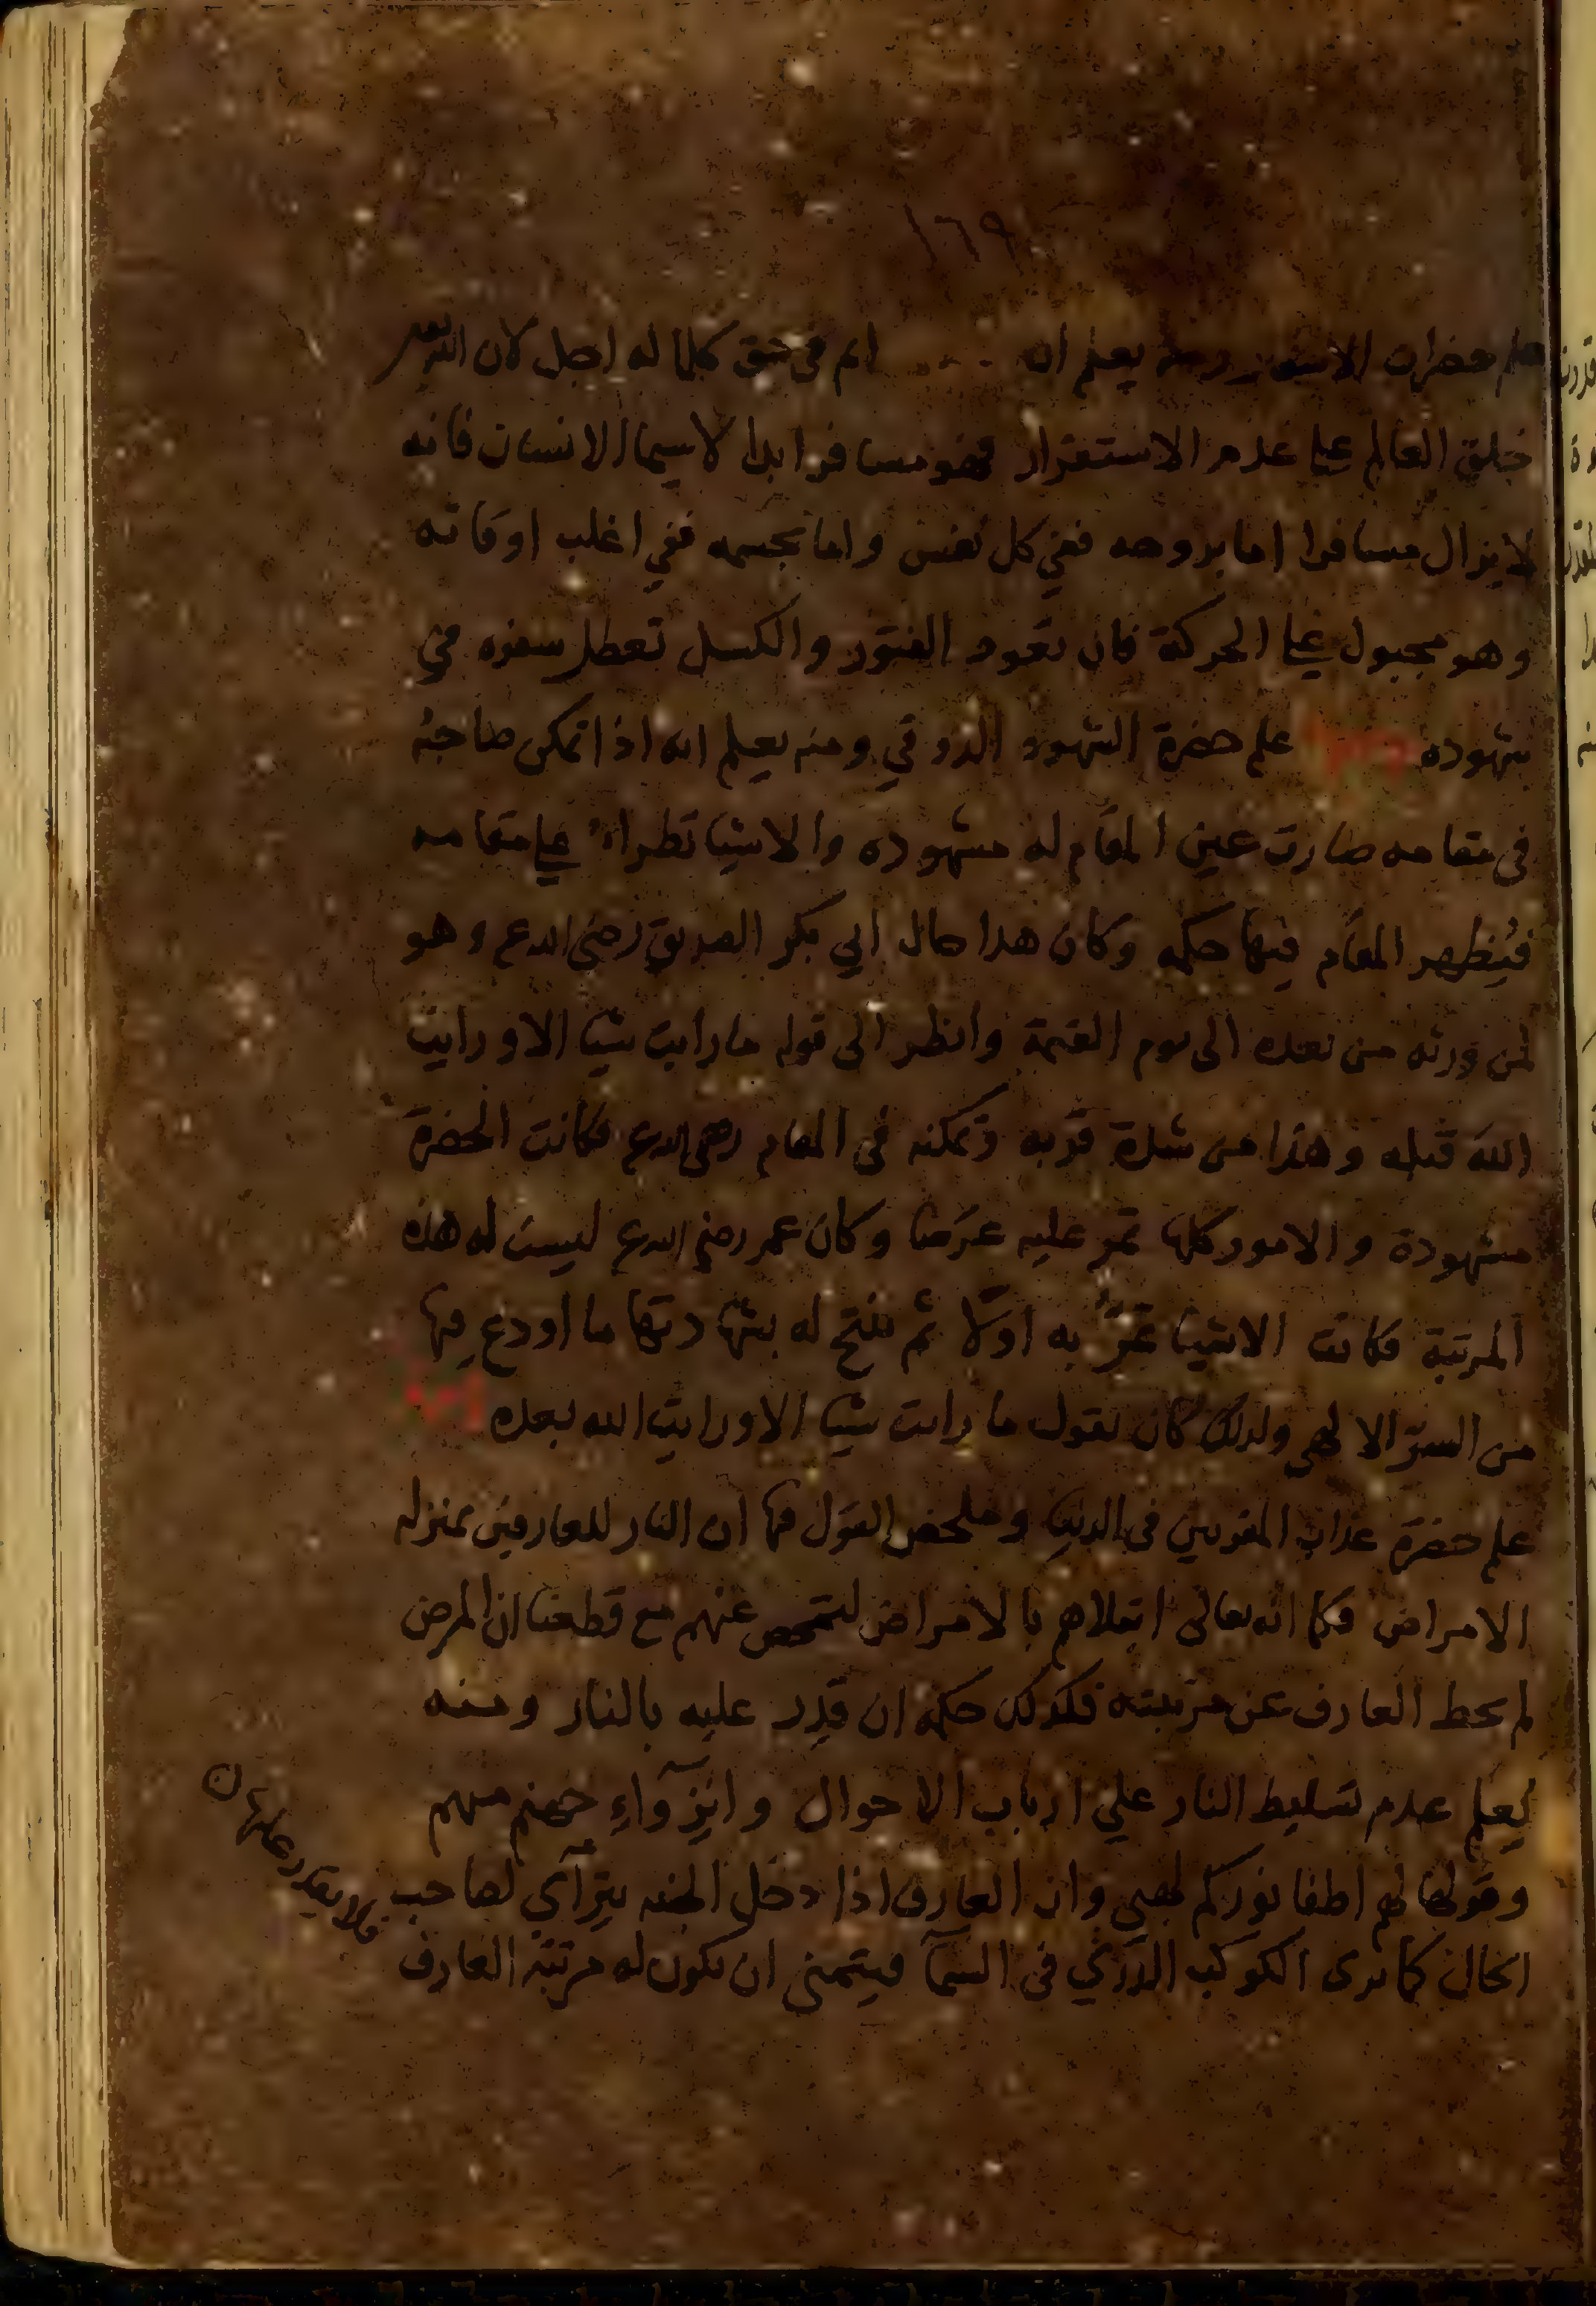 ١٦٩
علم حضرات الاسفار ومنه يعلم ان في حق كلما له اجل لان الله تعالى
خلق العالم علي عدم الاستقرار فهو مسافر ابدا لاسيما الانسان فانه
لا يزال مسافرا اما بروحه ففي كل نفس واما بجسمه ففي اغلب اوقاته
وهو مجبول علي الحركة فان تعود الفتور والكسل تعطل سفره في
شهوده علم حضرة الشهود الذوقي ومنه يعلم انه اذا تمكن صاحبه
في مقامه صارت عين المقام له مشهوده والاشيا تطراء علي مقامه
فيُظهر المقام فيها حكمه وكان هدا حال ابي بكر الصديق رضي الله ع وهو
لمن ورثه من بعده الى يوم القيمة وانظر الى قوله ما رايت شيا الا ورايت
الله قبله وهذا من شدة قربه وتمكنه في المقام رضي الله ع فكانت الحضرة
مشهودة والامور كلها تمر عليه عرَضا وكان عمر رضي الله ع ليست له هذه
المرتبة فكانت الاشيا تمرُّ به اوّلا ثم يفتح له بشهادتها ما اودع فيها
من السرّ الالهي ولدلك كان يقول ما رايت شيا الا ورايت الله بعده
علم حضرة عذاب المقربين في الدنيا وملخص القول فيها ان النار للعارفين بمنزله
الامراض فكما انه تعالى ابتلاهم بالامراض لتمحص عنهم مع قطعنا ان المرض
لم يحط العارف عن مرتبته فكدلك حكمه ان قدر عليه بالنار ومنه
يعلم عدم تسليط النار علي ارباب الاحوال وانزواءِ جهنم منهم
وقولها لهم اطفا نوركم لهبي وان العارف اذا دخل الجنه يترآي لصاحب
الحال كما يرى الكوكب الدرّي في السمآ فيتمني ان يكون له مرتبة العارف
فلا يقدر عليها ن